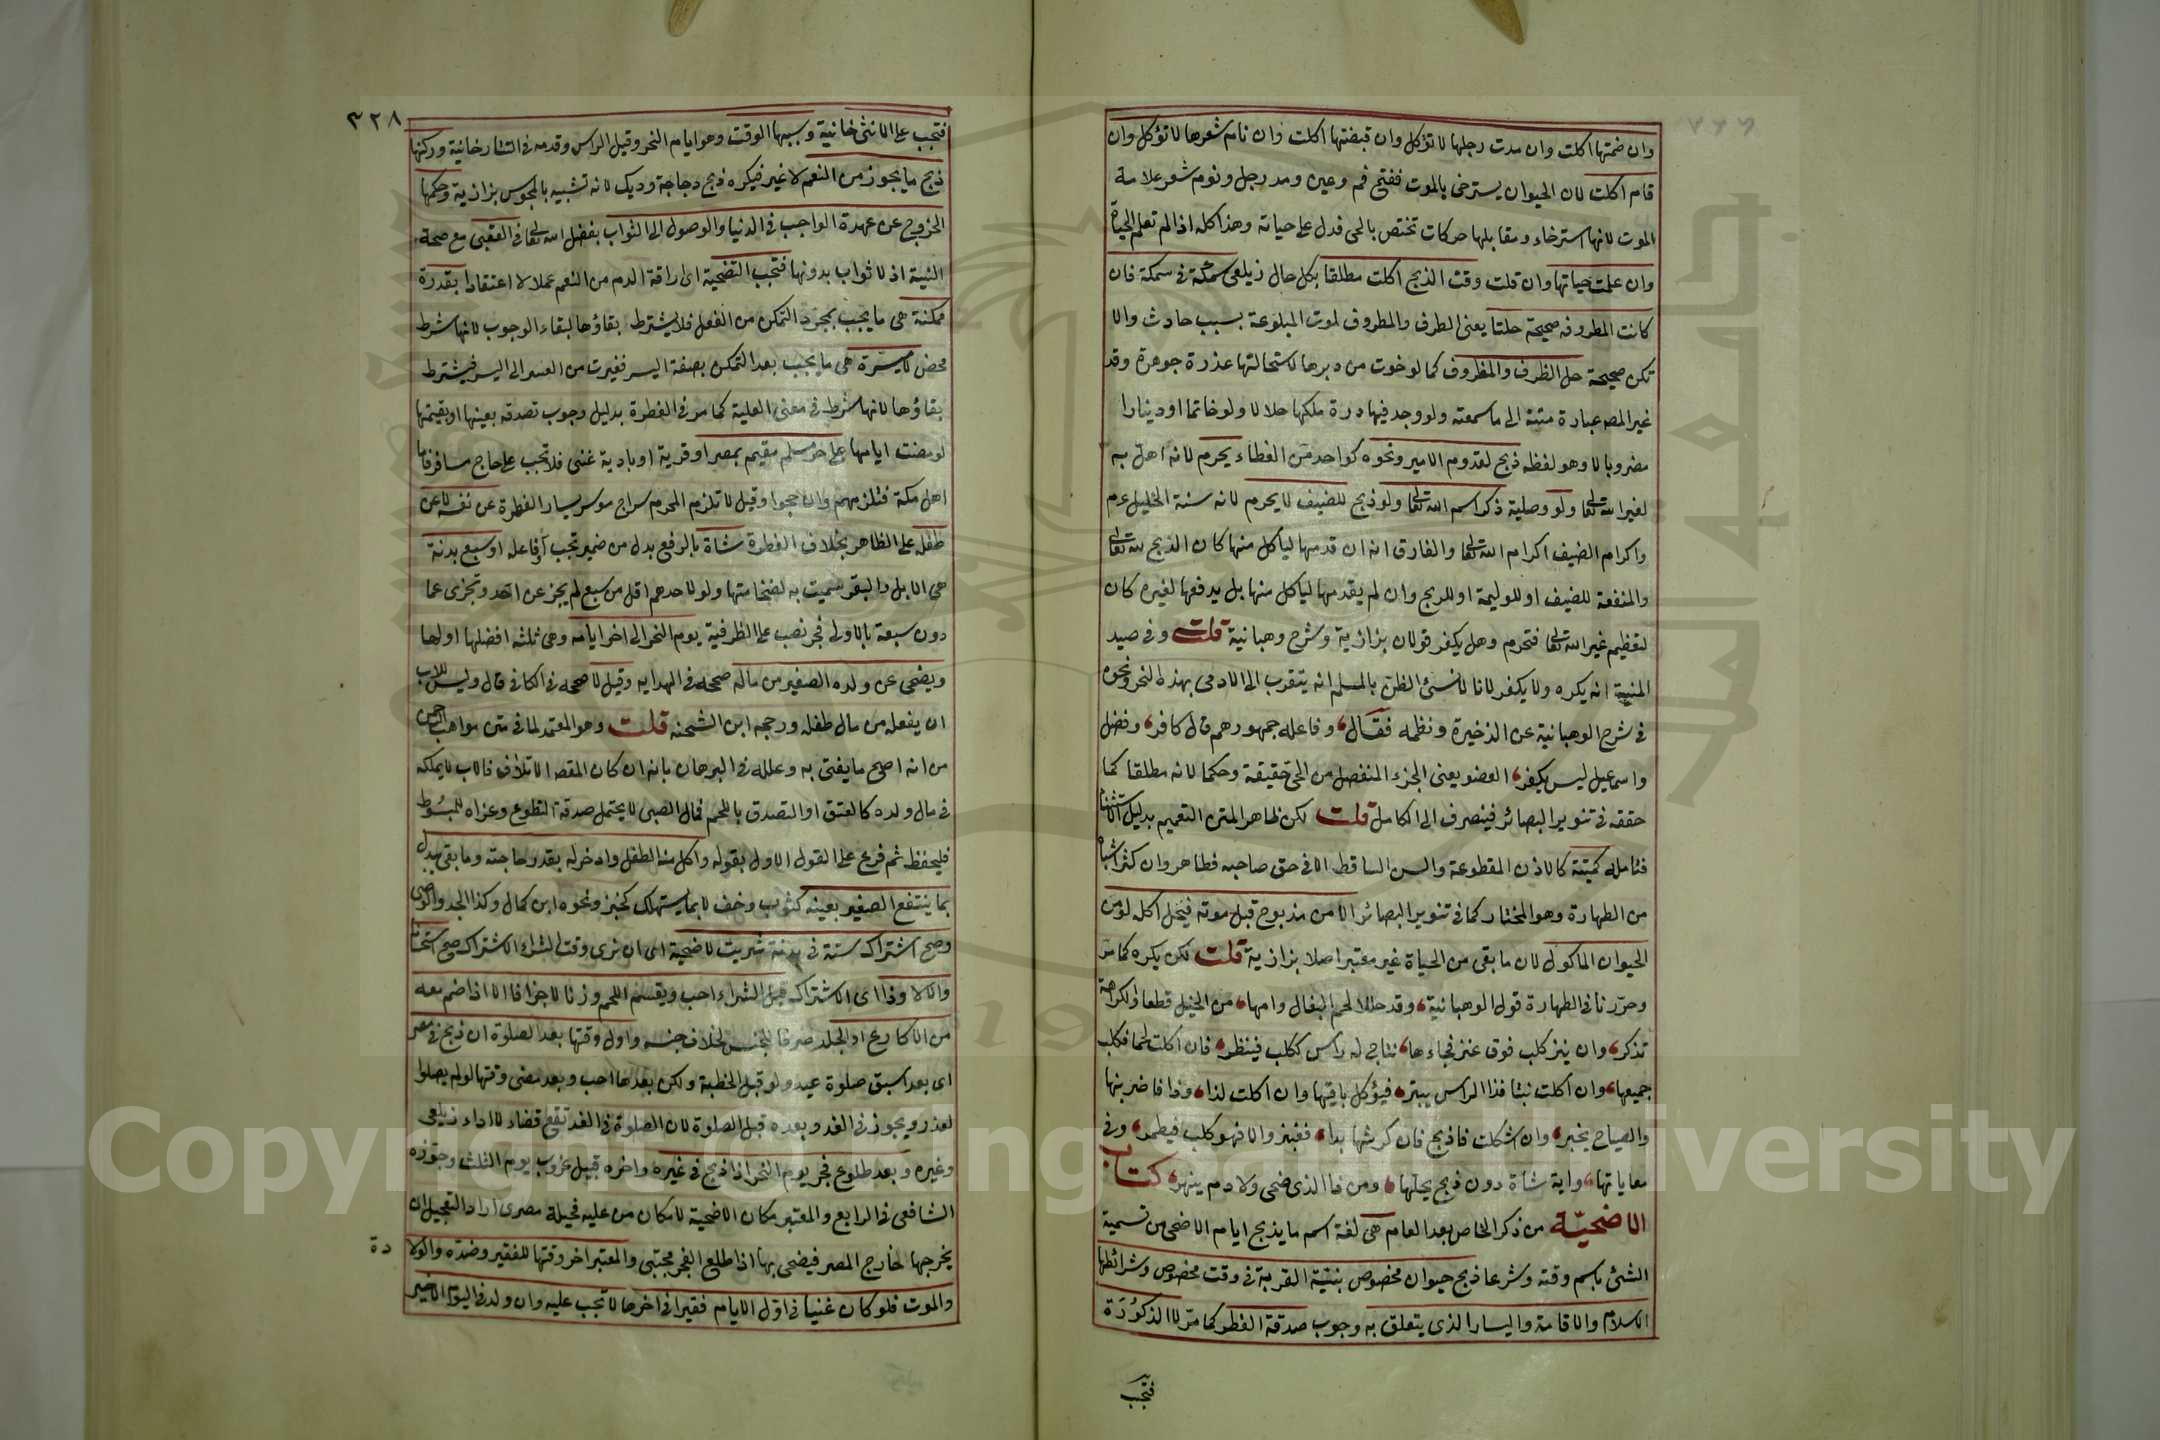 وان ضمتها اكلت وان مدت رجلها لا تؤكل وان قبضتها اكلت وان نام شعرها لا تؤكل وان
قام اكلت لان الحيوان يسترخى بالموت ففتح فم وعين ومد رجل ونوم شعر علامة
الموت لانها استرخاء ومقابلها حركات تختص بالحى فدل على حياته وهذا كله اذا لم تعلم الحياة
وان علمت حياتها وان قلت وقت الذبح اكلت مطلقا بكل حال زيلعى سمكة فى سمكة فان
كانت المظروفه صحيحة حلتا يعنى الظرف والمظروف لموت المبلوعة بسبب حادث والا
تكن صحيحة حل الظرف والمظروف كما لو خوت من دبرها لاستحالتها عذرة جوهرة وقد
غير المصه عبارة متنه الى ما سمعته ولو وجد فيها درة ملكها حلالا ولو خاتما او دينارا
مضروبا لا وهو لقطه ذبح لقدوم الامير ونحوه كواحد من العظماء يحرم لانه اهل به
لغير الله تعالى ولو وصلية ذكر اسم الله تعالى ولو ذبح للضيف لا يحرم لانه سنة الخليل عم
واكرام الضيف اكرام الله تعالى والفارق انه ان قدمها ليأكل منها كان الذبح لله تعالى
والمنفعة للضيف او للوليمة او للربح وان لم يقدمها ليأكل منها بل يدفعها لغيره كان
لتعظيم غير الله تعالى فتحرم وهل يكفر قولان بزازية وشرح وهبانية قلت وفى صيد
المنية انه يكره ولا يكفر لانا لا نسئ الظن بالمسلم انه يتقرب الى الادمى بهذا النحر ونحوه
فى شرح الوهبانية عن الذخيرة ونظمه فقال وفاعله جمهورهم قال كافر وفضل
واسماعيل ليس يكفر العضو يعنى الجزء المنفصل من الحى حقيقة وحكما لانه مطلقا كما
حققه فى تنوير البصائر فينصرف الى الكامل قلت لكن ظاهر المتن التعميم بدليل الاستثناء
فتأمله كميتة كالاذن المقطوعة والسن الساقط الا فى حق صاحبه فطاهر وان كثر اشباه
من الطهارة وهو المختار كما فى تنوير البصائر الا من مذبوح قبل موته فيحل اكله لو من
الحيوان الماكول لان ما بقى من الحياة غير معتبر اصلا بزازية قلت لكن يكره كما مر
وحررنا فى الطهارة قول الوهبانية وقد حللا لحم البغال وامها من الخيل قطعا والكراهة
تذكر وان ينز كلب فوق عنز فجاءها نتاج له راس ككلب فينظر فان اكلت لحما فكلب
جميعها وان اكلت تبنا فذا الراس يبتر فيؤكل باقيها وان اكلت لذا وذا فاضربنها
والصياح يخبر وان اشكلت فاذبح فان كرشها بدا فعنز والا فهو كلب فيطمر وفى
معاياتها واية شاة دون ذبح يحلها ومن ذا الذى ضحى ولا دم ينهر كتاب
الاضحيّة من ذكر الخاص بعد العام هى لغة اسم ما يذبح ايام الاضحى من تسمية
الشئ باسم وقته وشرعا ذبح حيوان مخصوص بنية القربة فى وقت مخصوص وشرائطها
الاسلام والاقامة واليسار الذى يتعلق به وجوب صدقة الفطر كما مر لا الذكورة
فتجب
٣٢٨
فتجب على الانثى خانية وسببها الوقت وهو ايام النحر وقيل الراس وقدمه فى التتارخانية وركنها
ذبح ما يجوز من النعم لا غير فيكره ذبح دجاجة وديك لانه تشبيه بالمجوس بزازية وحكمها
الخروج عن عهدة الواجب فى الدنيا والوصول الى الثواب بفضل الله تعالى فى العقبى مع صحة
النية اذ لا ثواب بدونها فتجب التضحية اى اراقة الدم من النعم عملا لا اعتقادا بقدرة
ممكنة هى ما يجب بمجرد التمكن من الفعل فلا يشترط بقاؤها لبقاء الوجوب لانها شرط
محض لا ميسرة هى ما يجب بعد التمكن بصفة اليسر فغيرت من العسر الى اليسر فيشترط
بقاؤها لانها شرط فى معنى العلية كما مر فى الفطرة بدليل وجوب تصدقه بعينها او بقيمتها
لو مضت ايامها على حر مسلم مقيم بمصر او قرية او بادية غنى فلا تجب على حاج مسافر فاما
اهل مكة فتلزمهم وان حجوا وقيل لا تلزم المحرم سراج موسر يسار الفطرة عن نفسه لا عن
طفله على الظاهر بخلاف الفطرة شاة بالرفع بدل من ضمير تجب أو فاعله او سبع بدنة
هى الابل والبقر سميت به لضخامتها ولو لاحدهم اقل من سبع لم يجز عن احد وتجزى عما
دون سبعة بالاولى فجر نصب على الظرفية يوم النحر الى اخر ايامه وهى ثلثه افضلها اولها
ويضحى عن ولده الصغير من ماله صححه فى الهدايه وقيل لا صححه فى الكافى قال وليس للاب
ان يفعله من مال طفله ورجحه ابن الشحنه قلت وهو المعتمد لما فى متن مواهب الرحمن
من انه اصح ما يفتى به وعلله فى البرهان بانه ان كان المقصد الاتلاف فالاب لا يملكه
فى مال ولده كالعتق او التصدق باللحم فمال الصبى لا يحتمل صدقة التطوع وعزاه للمبسوط
فليحفظ ثم فرع على القول الاول بقوله واكل منه الطفل وادخر له بقدر حاجته وما بقى يبدل
بما ينتفع الصغير بعينه كثوب وخف لا بما يستهلك كخبز ونحوه ابن كمال وكذا الجد والوصى
وصح اشتراك ستة فى بدنة شريت لاضحية اى ان نوى وقت الشراء الاشتراك صح استحسانا
والا لا وذا اى الاشتراك قبل الشراء احب ويقسم اللحم وزنا لا جزافا الا اذا ضم معه
من الاكارع او الجلد صرفا للجنس لخلاف جنسه واول وقتها بعد الصلوة ان ذبح فى مصر
اى بعد اسبق صلوة عيد ولو قبل الخطبة ولكن بعدها احب وبعد مضى وقتها لو لم يصلوا
لعذر ويجوز فى الغد وبعده قبل الصلوة لان الصلوة فى الغد تقع قضاء لا اداء زيلعى
وغيره وبعد طلوع فجر يوم النحر اذا ذبح فى غيره واخره قبيل غروب يوم الثلث وجوزه
الشافعى فى الرابع والمعتبر مكان الاضحية لا مكان من عليه فحيلة مصرى اراد التعجيل ان
يخرجها لخارج المصر فيضحى بها اذا طلع الفجر مجتبى والمعتبر اخر وقتها للفقير وضده والولا
دة
والموت فلو كان غنيا فى اول الايام فقيرا فى اخرها لا تجب عليه وان ولد فى اليوم الاخير
Copyright © King Saud University